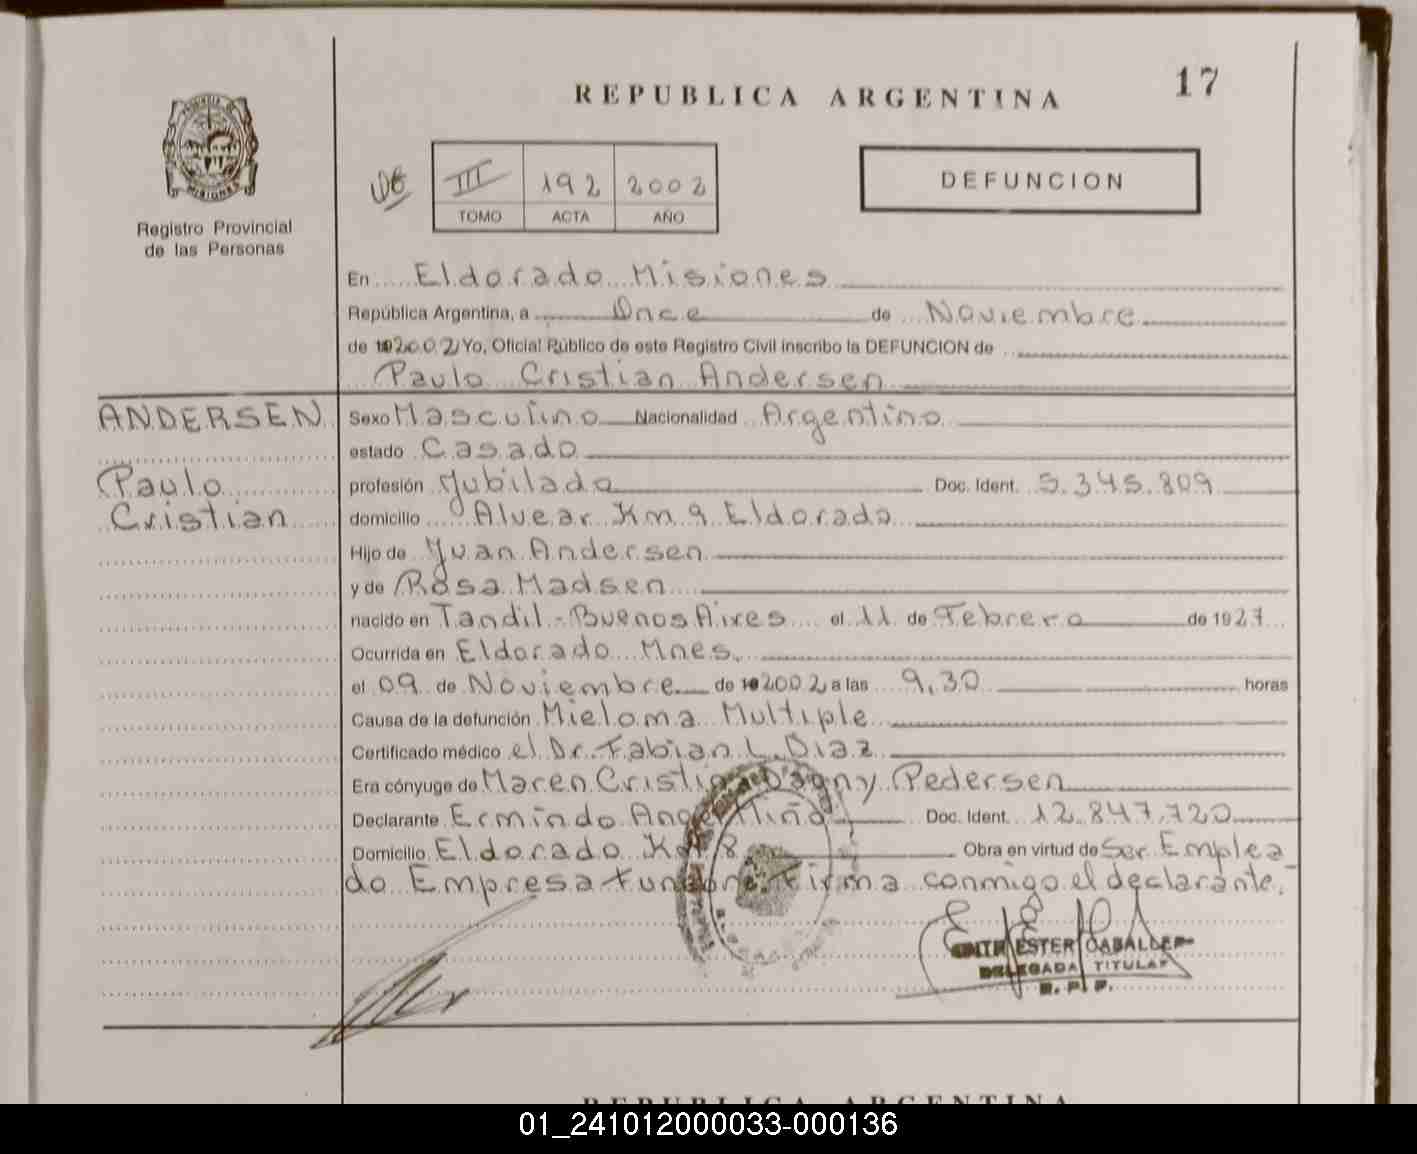 17
REPUBLICA ARGENTINA
PROVINCIA DE
MISIONES
Registro Provincial
de las Personas
III 192 2002
TOMO ACTA AÑO
DEFUNCION
En Eldorado Misiones
República Argentina, a Once de Noviembre
de 192002 Yo, Oficial Público de este Registro Civil inscribo la DEFUNCION de
Paulo Cristian Andersen
ANDERSEN
Paulo
Cristian
Sexo Masculino Nacionalidad Argentino
estado Casado
profesión Jubilado Doc. Ident. 5.345.809
domicilio Alvear Km 9 Eldorado
Hijo de Juan Andersen
y de Rosa Madsen
nacido en Tandil - Buenos Aires el 11 de Febrero de 1927
Ocurrida en Eldorado Mnes.
el 09 de Noviembre de 192002 a las 9,30 horas
Causa de la defunción Mieloma Multiple
Certificado médico el Dr. Fabian L. Diaz
Era cónyuge de Maren Cristina Dagny Pedersen
Declarante Ermindo Doc. Ident. 12.847.720
Domicilio Eldorado Km 8 Obra en virtud de Ser Emplea-
do Empresa Funebre. Firma conmigo el declarante.
ESTER CABALLER
DELEGADA TITULAR
R. P. P.
REPUBLICA ARGENTINA
01_241012000033-000136